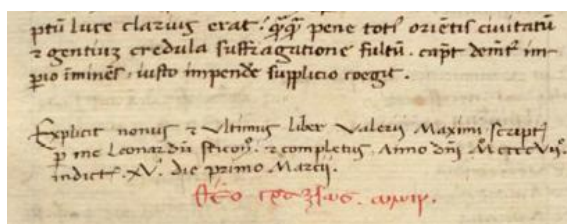 ptū luce clarius erat: q̄q̄ pene toti᷒ oriētis ciuitatū
⁊ gentiuȝ credula suffragatione fultū. cap̄t dem̄t im-
p̄io īminēs. iusto impendē supplicio coegit.
Explicit nonus ⁊ vltimus liber Valerii Maximi script᷒
p̱ me Leonardū & completus. Anno dn̄i Mº CCCCº VIIº.
indict. XV. die primo Marcii.